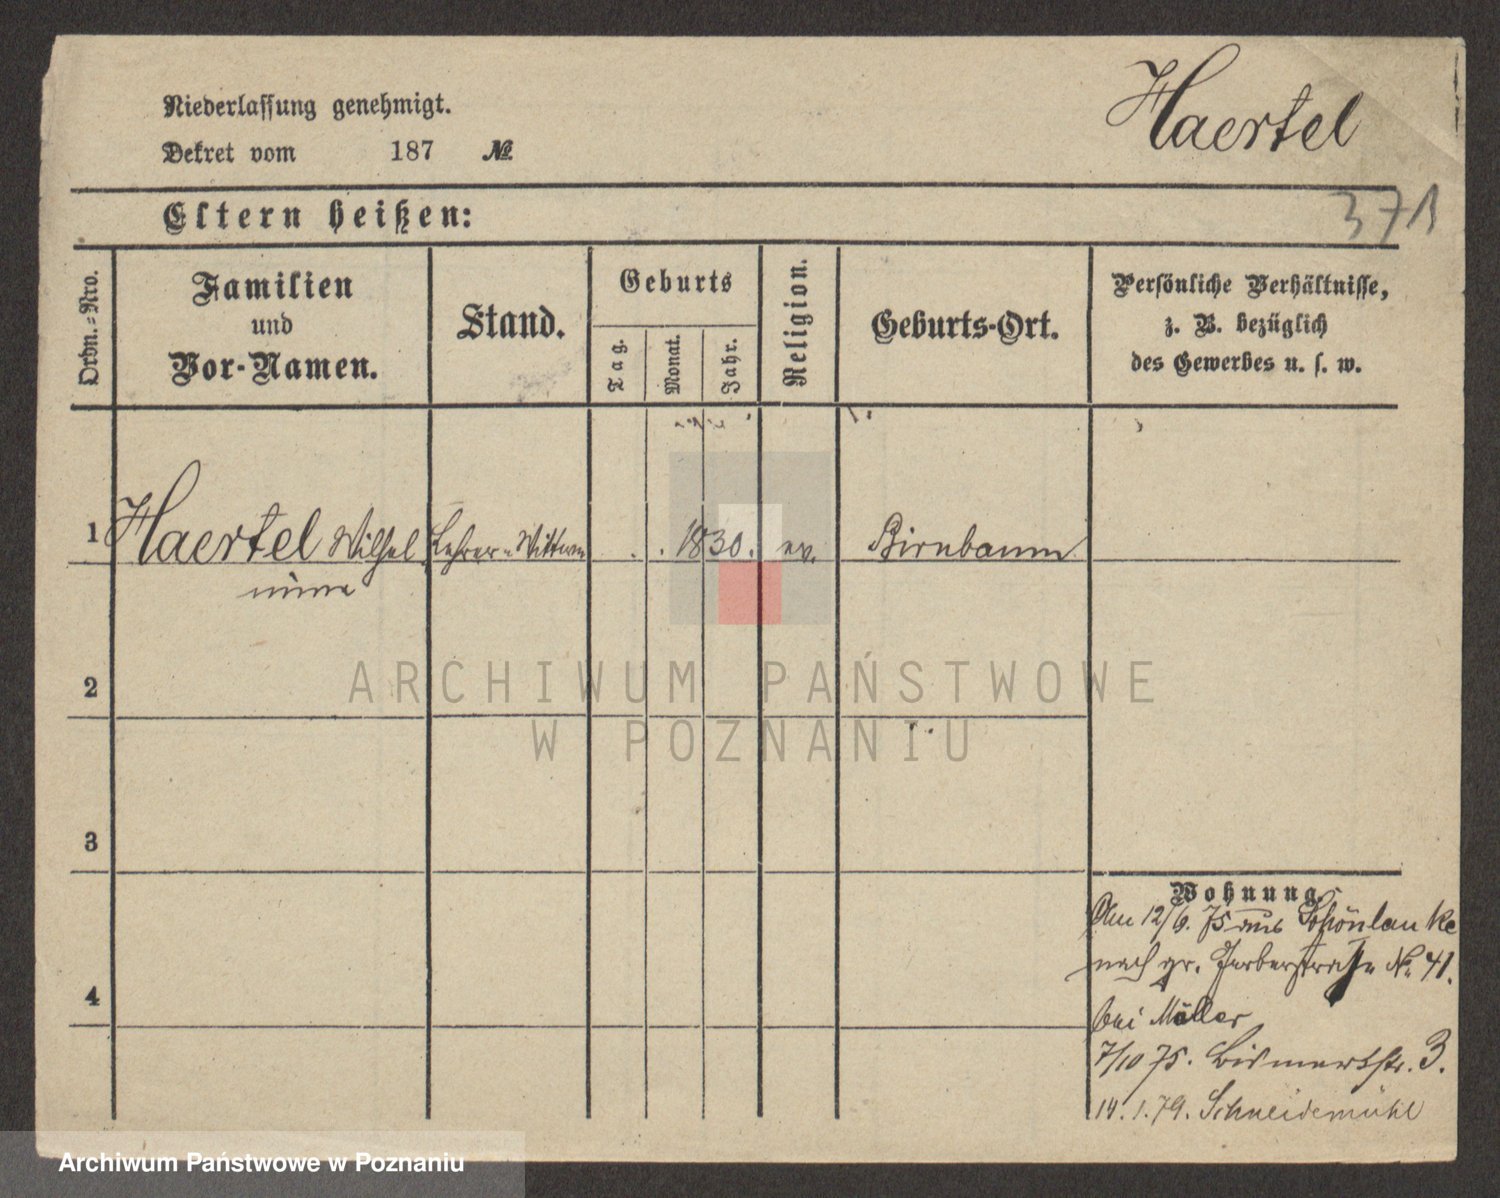 Haertel
Niederlassung genehmigt.
Dekret vom 187 №
371
Eltern heißen:
Ordn.-Nro.
Familien
und
Vor-Namen.
Stand.
Geburts
Tag.
Monat.
Jahr.
Religion.
Geburts-Ort.
Persönliche Verhältnisse,
z. B. bezüglich
des Gewerbes u. s. w.
1 Haertel Wilhel Lehrer-Wittwe 1830. ev. Birnbaum
mine
2
3
4
Wohnung
Am 12/6. 75 aus Schönlanke
nach gr. Gerberstraße No 41.
bei Möller
7/10 75. Bismarkstr. 3.
14.1.79. Schneidemühl
ARCHIWUM PAŃSTWOWE
W POZNANIU
Archiwum Państwowe w Poznaniu